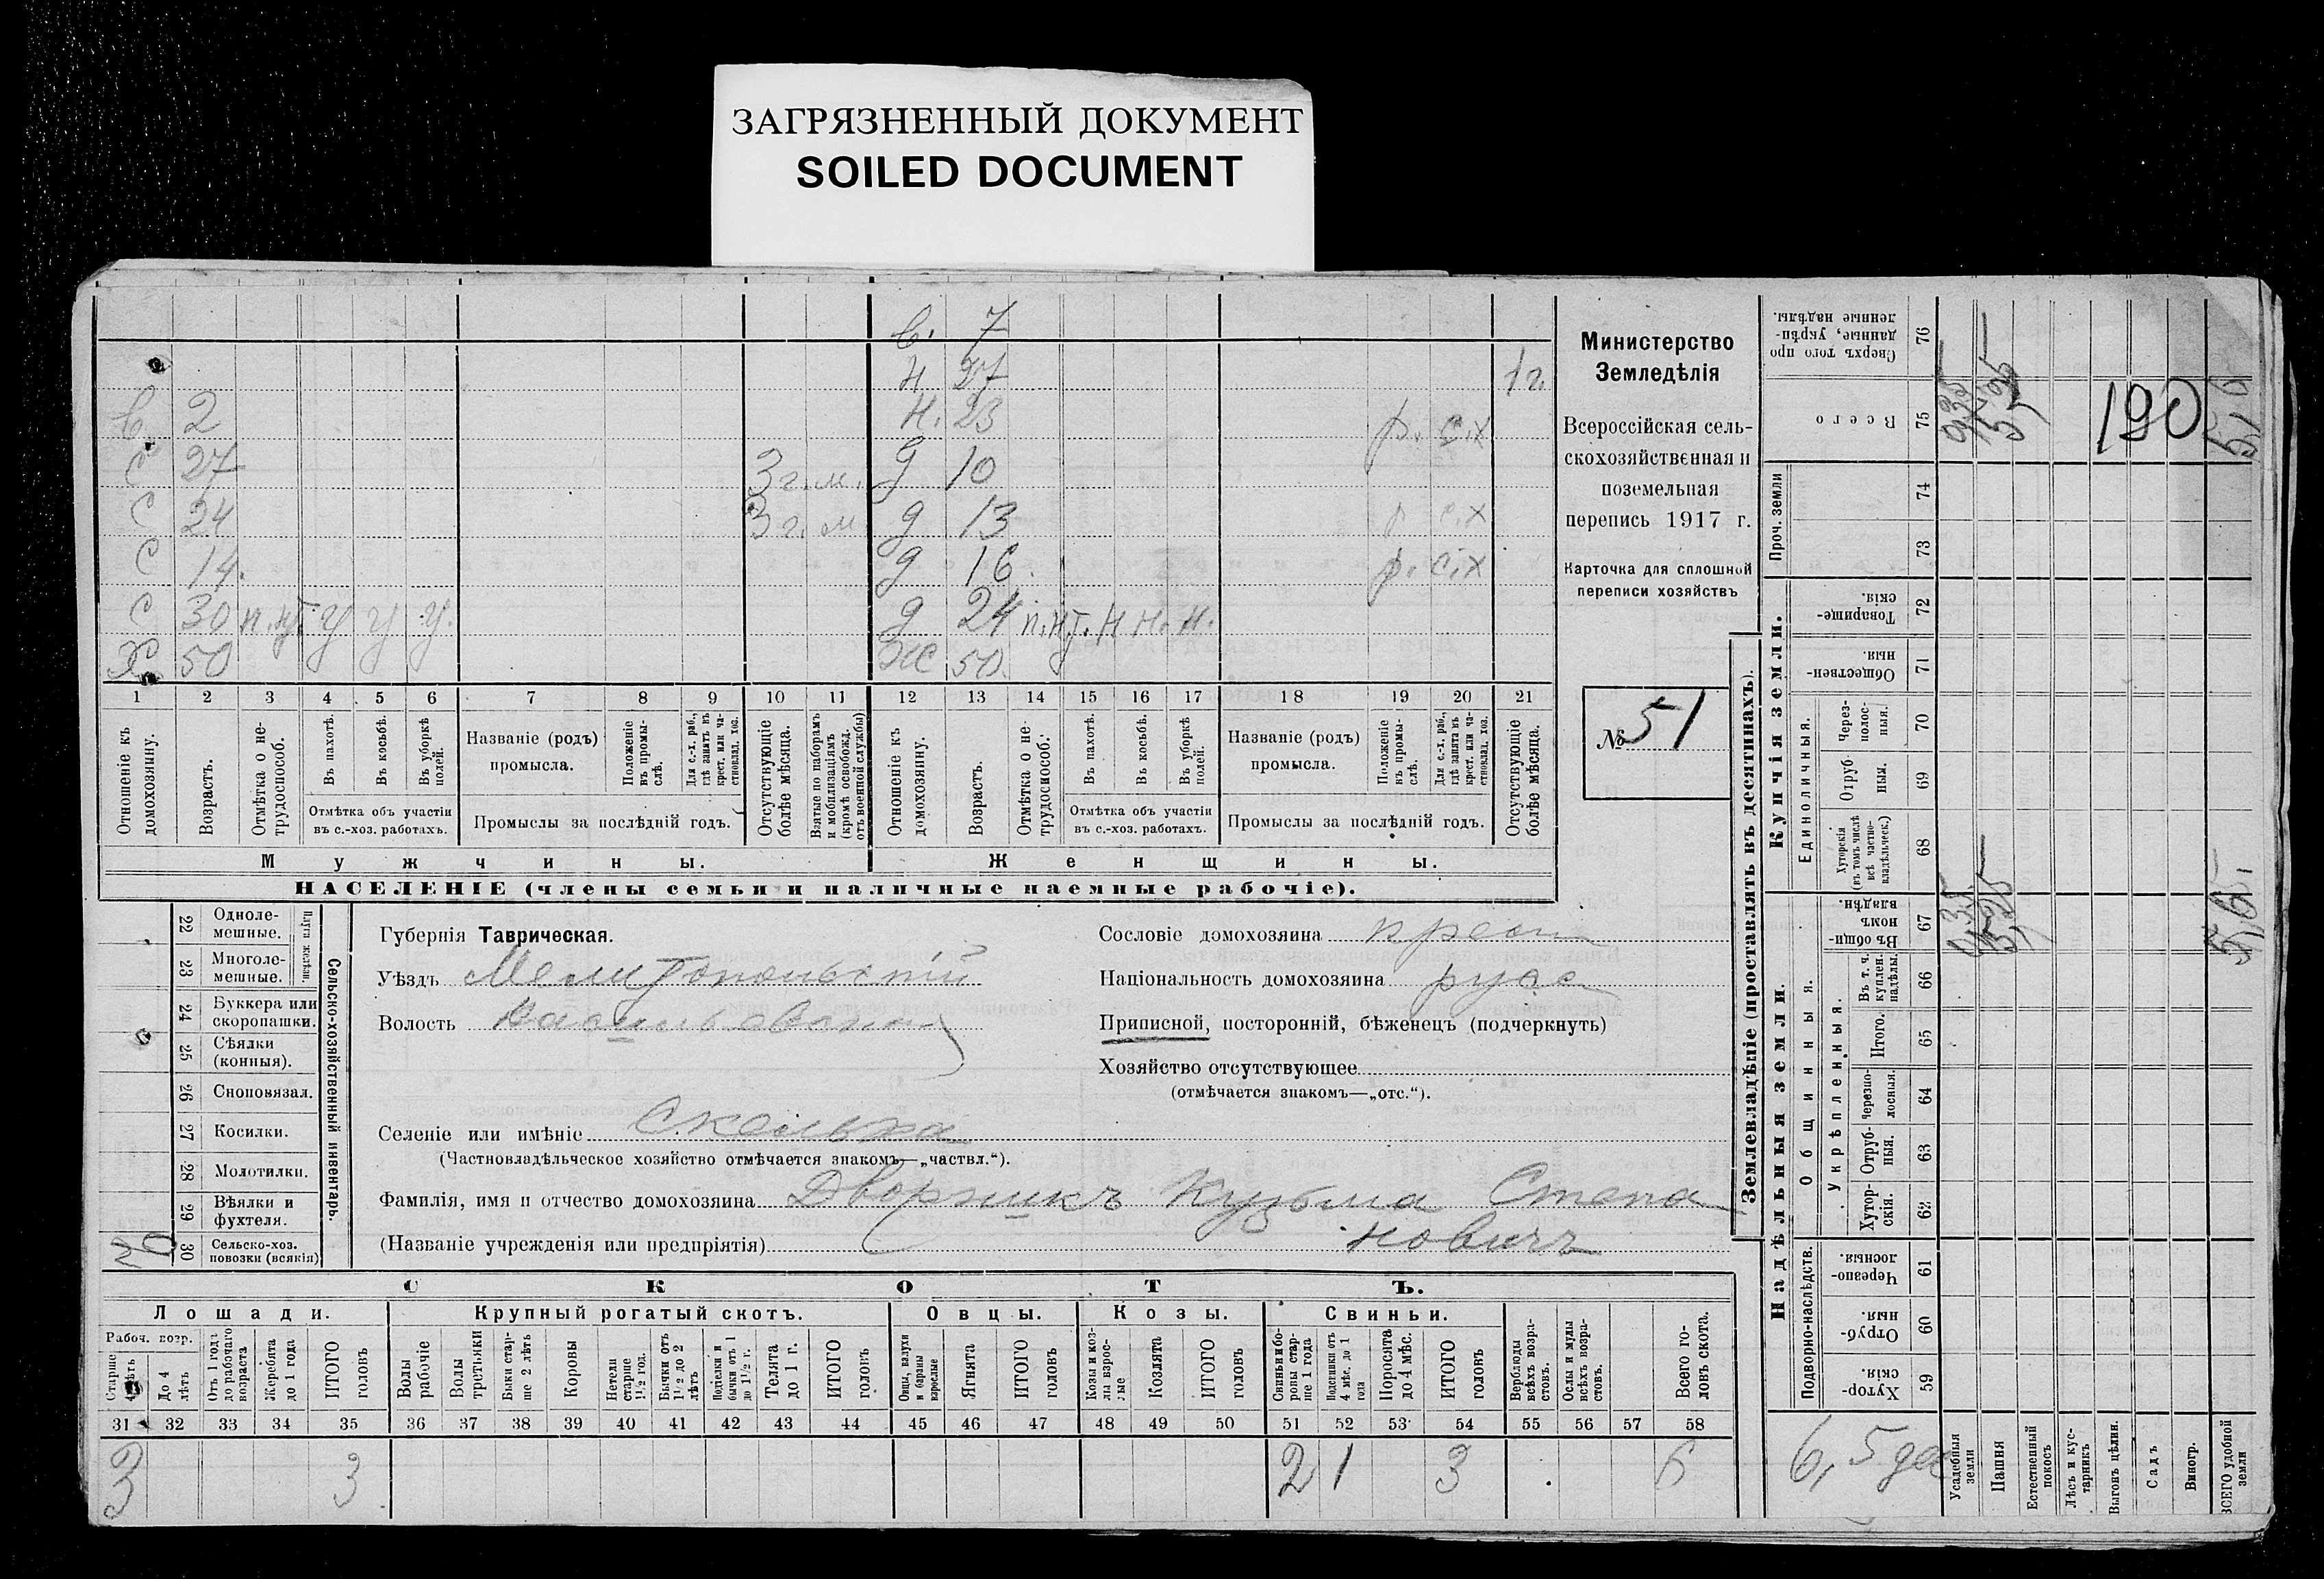 ЗАГРЯЗНЕННЫЙ ДОКУМЕНТ
SOILED DOCUMENT
в. 7
н 27 1 г.
в 2 н. 23 р. с.х
с 27 3 г. м. д 10
с 24 3 г. м д 13 р с.х
с 14. д 16. р. с.х
с 30 п.нт. у у у. д 24 п.н.т. н н. н.
Х. 50 Ж 50.
1 2 3 4 5 6 7 8 9 10 11 12 13 14 15 16 17 18 19 20 21
Отношеніе къ домохозяину.
Возрастъ.
Отмѣтка о не-трудоспособ.
Въ пахотѣ.
Въ косьбѣ.
Въ уборкѣ полей.
Отмѣтка объ участіи
въ с.-хоз. работахъ.
Названіе (родъ)
промысла.
Положеніе въ промы-слѣ.
Для с.-х. раб., гдѣ занятъ въ крест. или ча-стновлад. хоз.
Промыслы за послѣдній годъ.
Отсутствующіе болѣе мѣсяца.
Взятые по наборамъ и мобилизаціямъ (кромѣ освобожд. отъ военной службы)
Отношеніе къ домохозяину.
Возрастъ.
Отмѣтка о не-трудоспособ.
Въ пахотѣ.
Въ косьбѣ.
Въ уборкѣ полей.
Отмѣтка объ участіи
въ с.-хоз. работахъ.
Названіе (родъ)
промысла.
Положеніе въ промы-слѣ.
Для с.-х. раб., гдѣ занята въ крест. или ча-стновлад. хоз.
Промыслы за послѣдній годъ.
Отсутствующіе болѣе мѣсяца.
Мужчины. Женщины.
НАСЕЛЕНІЕ (члены семьи и наличные наемные рабочіе).
Министерство
Земледѣлія
Всероссійская сель-
скохозяйственная и
поземельная
перепись 1917 г.
Карточка для сплошной
переписи хозяйствъ
№ 51
Сельско-хозяйственный инвентарь.
Плуги желѣзн.
22 Одноле-
мешные.
23 Многоле-
мешные.
24 Буккера или
скоропашки.
25 Сѣялки
(конныя).
26 Сноповязал.
27 Косилки.
28 Молотилки.
29 Вѣялки и
фухтеля.
30 Сельско-хоз.
повозки (всякія)
Губернія Таврическая.
Уѣздъ Мелитопольскій
Волость Васильевская
Селеніе или имѣніе Скельха
(Частновладѣльческое хозяйство отмѣчается знакомъ—„частвл.“).
Фамилія, имя и отчество домохозяина Дворникъ Кузьма Степа
(Названіе учрежденія или предпріятія) новичъ
Сословіе домохозяина крест
Національность домохозяина русс
Приписной, посторонній, бѣженецъ (подчеркнуть)
Хозяйство отсутствующее
(отмѣчается знакомъ—„отс.“).
СКОТЪ.
Лошади. Крупный рогатый скотъ. Овцы. Козы. Свиньи.
Рабоч. возр.
Старше 4 лѣтъ
До 4 лѣтъ
Отъ 1 года до рабочаго возраста
Жеребята до 1 года
ИТОГО головъ
Волы рабочіе
Волы третьяки
Быки стар-ше 2 лѣтъ
Коровы
Нетели старше 1½ год.
Бычки отъ 1½ до 2 лѣтъ
Подтелки и бычки отъ 1 до 1½ г.
Телята до 1 г.
ИТОГО головъ
Овцы, валухи и бараны взрослые
Ягнята
ИТОГО головъ
Козы и коз-лы взрос-лые
Козлята
ИТОГО головъ
Свиньи и бо-ровы стар-ше 1 года
Подсвинки отъ 4 мѣс. до 1 года
Поросята до 4 мѣс.
ИТОГО головъ
Верблюды всѣхъ возра-стовъ.
Ослы и мулы всѣхъ возра-стовъ.
Всего го-ловъ скота.
31 32 33 34 35 36 37 38 39 40 41 42 43 44 45 46 47 48 49 50 51 52 53 54 55 56 57 58
3 3 2 1 3 6
Землевладѣніе (проставлять въ десятинахъ).
Надѣльныя земли.
Купчія земли.
Проч. земли
Подворно-наслѣдств.
Общинныя.
Укрѣпленныя.
Единоличныя.
59 Хутор-скія.
60 Отруб-ныя.
61 Черезпо-лосныя
62 Хутор-скія.
63 Отруб-ныя.
64 Черезпо-лосныя.
65 Итого.
66 Въ т. ч. куплен. надѣлы.
67 Въ общин-номъ владѣн.
68 Хуторскія (въ томъ числѣ всѣ частно-владѣльческ.)
69 Отруб-ныя.
70 Через-полос-ныя.
71 Обществен-ныя.
72 Товарище-скія.
73
74
75 Всего
76 Сверхъ того про-данные, укрѣп-ленные надѣлы.
Усадебныя земли
Пашня
Естественный покосъ
Лѣсъ и кус-тарникъ
Выгонъ цѣлин.
Садъ
Виногр.
ВСЕГО удобной земли
190
6,5 дес